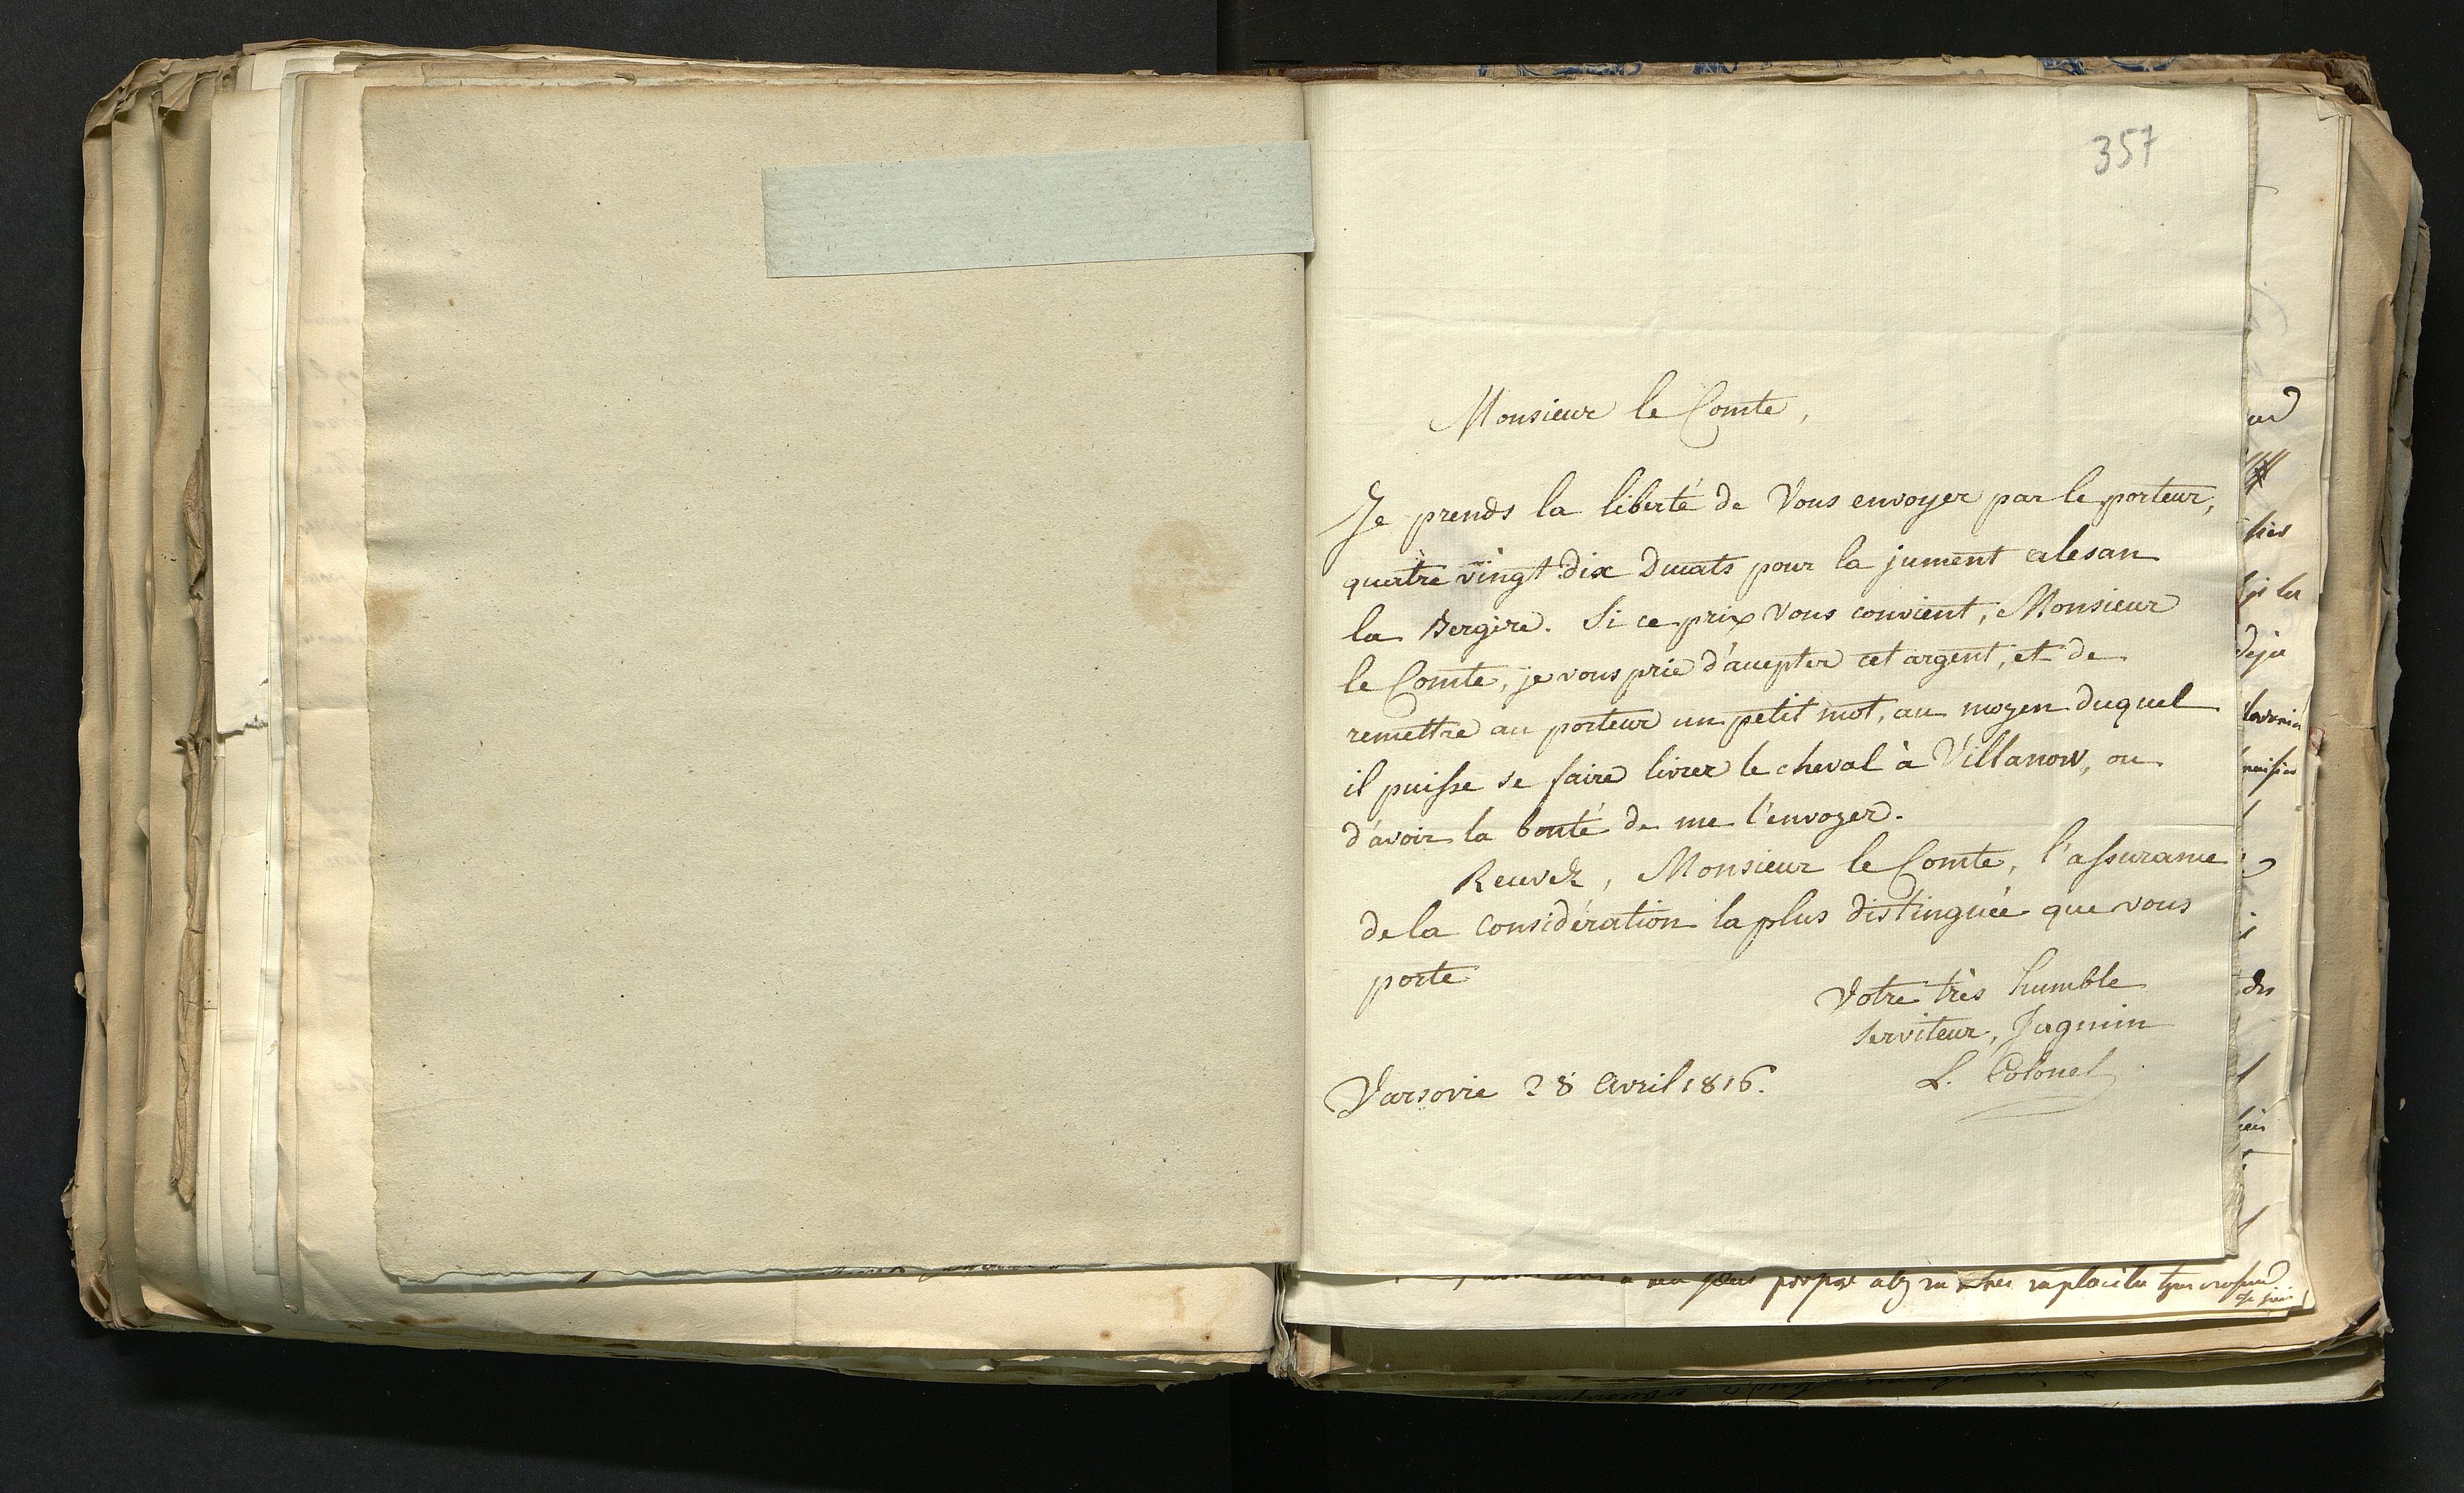 357
Monsieur le Comte,
Je prends la liberté de Vous envoyer par le porteur,
quatre vingt dix Ducats pour la jument alesan
la Bergère. Si ce prix Vous convient, Monsieur
le Comte, je vous prie d'accepter cet argent, et de
remettre au porteur un petit mot, au moyen duquel
il puisse se faire livrer le cheval à Villanow, ou
d'avoir la bonté de me l'envoyer.
Recevez, Monsieur le Comte, l'assurance
de la considération la plus distinguée que vous
porte
Votre très humble
serviteur, Jagmin
L. Colonel
Varsovie 28 Avril 1816.